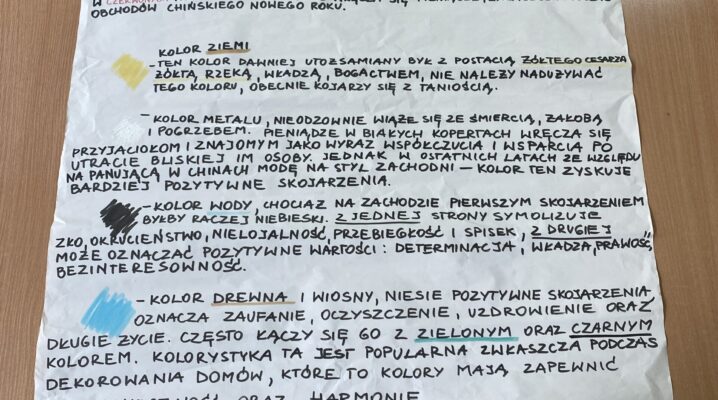 OBCHODÓW CHIŃSKIEGO NOWEGO ROKU.
KOLOR ZIEMI
- TEN KOLOR DAWNIEJ UTOŻSAMIANY BYŁ Z POSTACIĄ ŻÓŁTEGO CESARZA
ŻÓŁTĄ RZEKĄ, WŁADZĄ, BOGACTWEM, NIE NALEŻY NADUŻYWAĆ
TEGO KOLORU, OBECNIE KOJARZY SIĘ Z TANIOŚCIĄ.
- KOLOR METALU, NIEODZOWNIE WIĄŻE SIĘ ZE ŚMIERCIĄ, ŻAŁOBĄ
I POGRZEBEM. PIENIĄDZE W BIAŁYCH KOPERTACH WRĘCZA SIĘ
PRZYJACIOŁOM I ZNAJOMYM JAKO WYRAZ WSPÓŁCZUCIA I WSPARCIA PO
UTRACIE BLISKIEJ IM OSOBY. JEDNAK W OSTATNICH LATACH ZE WZGLĘDU
NA PANUJĄCĄ W CHINACH MODĘ NA STYL ZACHODNI - KOLOR TEN ZYSKUJE
BARDZIEJ POZYTYWNE SKOJARZENIA.
- KOLOR WODY, CHOCIAŻ NA ZACHODZIE PIERWSZYM SKOJARZENIEM
BYŁBY RACZEJ NIEBIESKI. Z JEDNEJ STRONY SYMOLIZUJE
ZŁO, OKRUCIEŃSTWO, NIELOJALNOŚĆ, PRZEBIEGŁOŚĆ I SPISEK, Z DRUGIEJ
MOŻE OZNACZAĆ POZYTYWNE WARTOŚCI: DETERMINACJA, WŁADZA, PRAWOŚĆ,
BEZINTERESOWNOŚĆ.
- KOLOR DREWNA I WIOSNY, NIESIE POZYTYWNE SKOJARZENIA
OZNACZA ZAUFANIE, OCZYSZCZENIE, UZDROWIENIE ORAZ
DŁUGIE ŻYCIE. CZĘSTO ŁĄCZY SIĘ GO Z ZIELONYM ORAZ CZARNYM
KOLOREM. KOLORYSTYKA TA JEST POPULARNA ZWŁASZCZA PODCZAS
DEKOROWANIA DOMÓW, KTÓRE TO KOLORY MAJĄ ZAPEWNIĆ
ORAZ HARMONIE